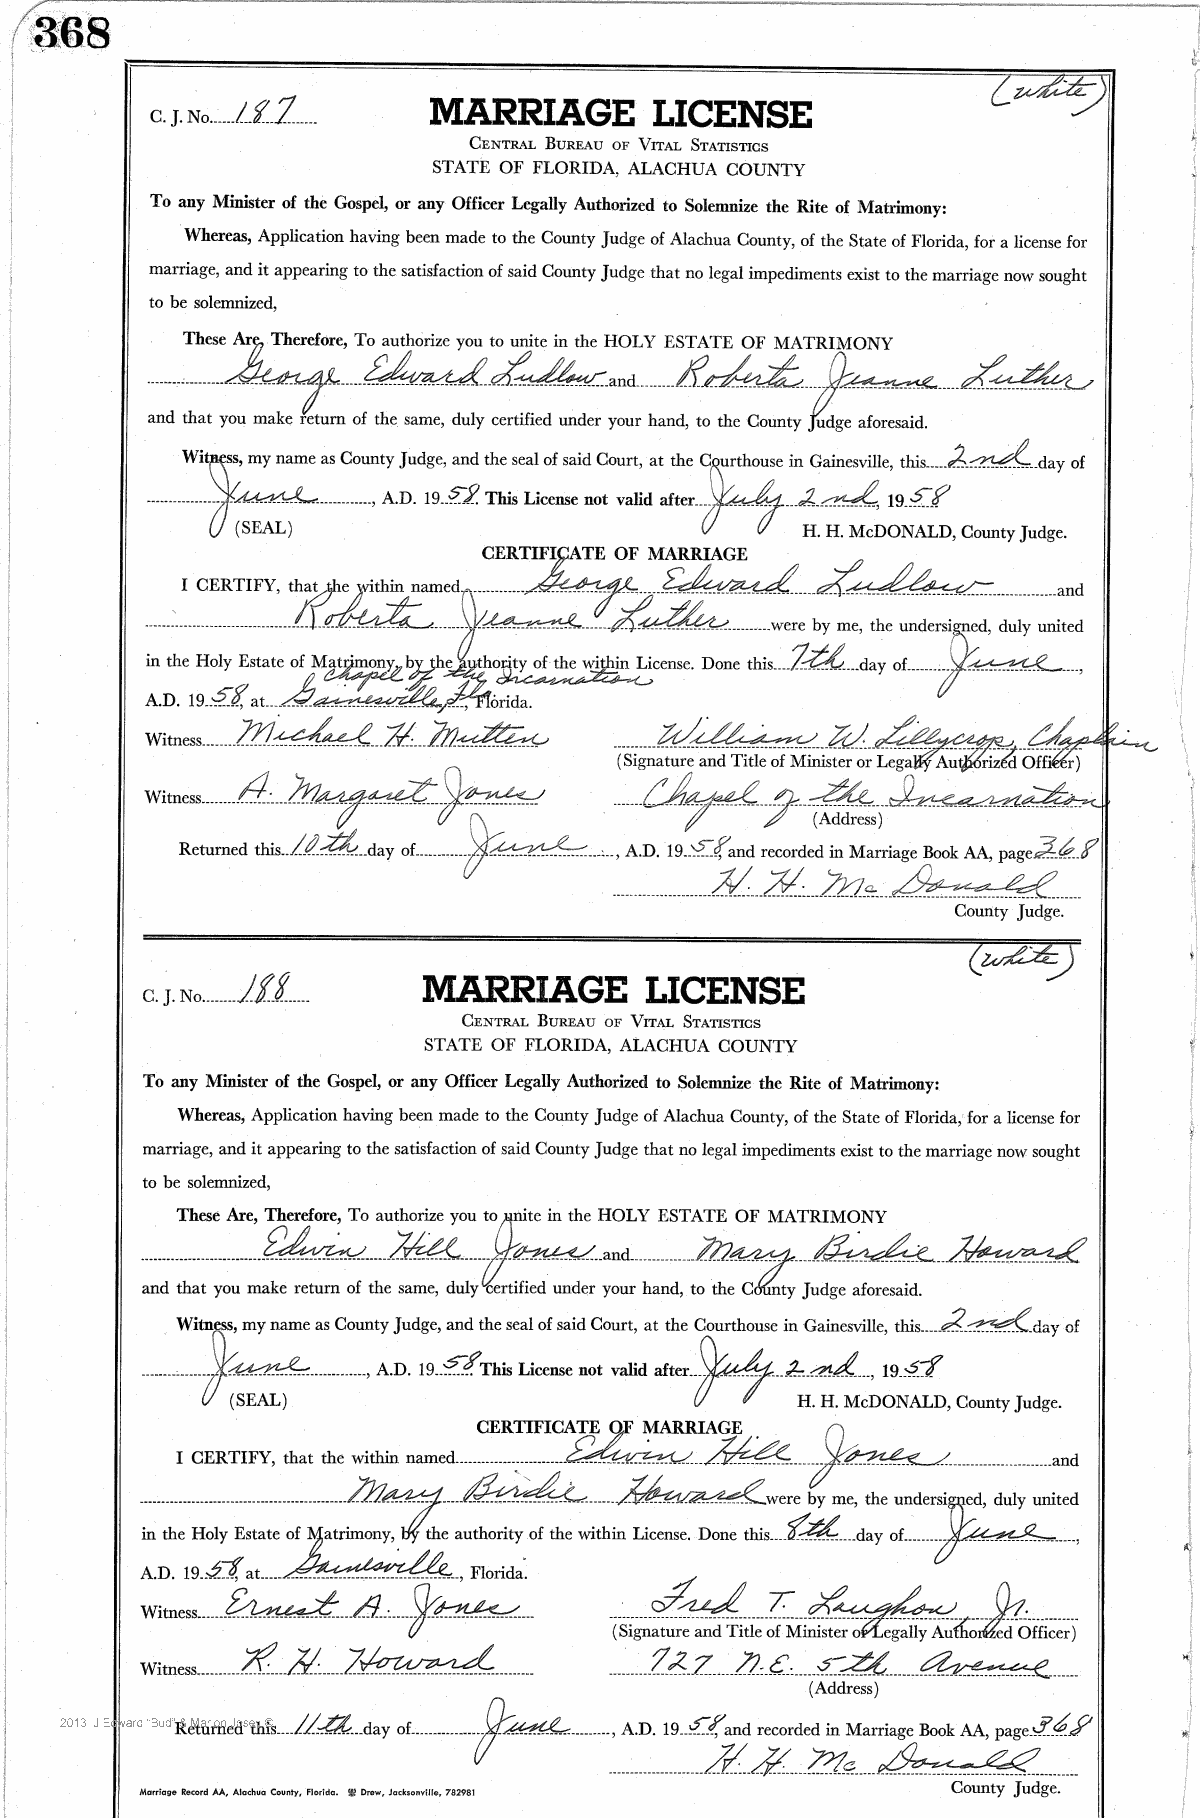 368
(white)
C. J. No. 187
MARRIAGE LICENSE
CENTRAL BUREAU OF VITAL STATISTICS
STATE OF FLORIDA, ALACHUA COUNTY
To any Minister of the Gospel, or any Officer Legally Authorized to Solemnize the Rite of Matrimony:
Whereas, Application having been made to the County Judge of Alachua County, of the State of Florida, for a license for
marriage, and it appearing to the satisfaction of said County Judge that no legal impediments exist to the marriage now sought
to be solemnized,
These Are, Therefore, To authorize you to unite in the HOLY ESTATE OF MATRIMONY
George Edward Ludlow and Roberta Jeanne Luther
and that you make return of the same, duly certified under your hand, to the County Judge aforesaid.
Witness, my name as County Judge, and the seal of said Court, at the Courthouse in Gainesville, this 2nd day of
June, A.D. 1958. This License not valid after July 2nd, 1958
(SEAL) H. H. McDONALD, County Judge.
CERTIFICATE OF MARRIAGE
I CERTIFY, that the within named George Edward Ludlow and
Roberta Jeanne Luther were by me, the undersigned, duly united
in the Holy Estate of Matrimony, by the authority of the within License. Done this 7th day of June,
Chapel of the Incarnation
A.D. 1958, at Gainesville, Fla., Florida.
Witness Michael H. Mutten William W. Lillycrop, Chaplain
(Signature and Title of Minister or Legally Authorized Officer)
Witness A. Margaret Jones Chapel of the Incarnation
(Address)
Returned this 10th day of June, A.D. 1958, and recorded in Marriage Book AA, page 368
H. H. McDonald
County Judge.
(white)
C. J. No. 188
MARRIAGE LICENSE
CENTRAL BUREAU OF VITAL STATISTICS
STATE OF FLORIDA, ALACHUA COUNTY
To any Minister of the Gospel, or any Officer Legally Authorized to Solemnize the Rite of Matrimony:
Whereas, Application having been made to the County Judge of Alachua County, of the State of Florida, for a license for
marriage, and it appearing to the satisfaction of said County Judge that no legal impediments exist to the marriage now sought
to be solemnized,
These Are, Therefore, To authorize you to unite in the HOLY ESTATE OF MATRIMONY
Edwin Hill Jones and Mary Birdie Howard
and that you make return of the same, duly certified under your hand, to the County Judge aforesaid.
Witness, my name as County Judge, and the seal of said Court, at the Courthouse in Gainesville, this 2nd day of
June, A.D. 1958. This License not valid after July 2nd, 1958
(SEAL) H. H. McDONALD, County Judge.
CERTIFICATE OF MARRIAGE
I CERTIFY, that the within named Edwin Hill Jones and
Mary Birdie Howard were by me, the undersigned, duly united
in the Holy Estate of Matrimony, by the authority of the within License. Done this 8th day of June,
A.D. 1958, at Gainesville, Florida.
Witness Ernest A. Jones Fred T. Laughon, Jr.
(Signature and Title of Minister or Legally Authorized Officer)
Witness R. H. Howard 727 N.E. 5th Avenue
(Address)
2013 J Edward "Bud" & Marion
Returned this 11th day of June, A.D. 1958, and recorded in Marriage Book AA, page 368
H. H. McDonald
County Judge.
Marriage Record AA, Alachua County, Florida. Drew, Jacksonville, 782981